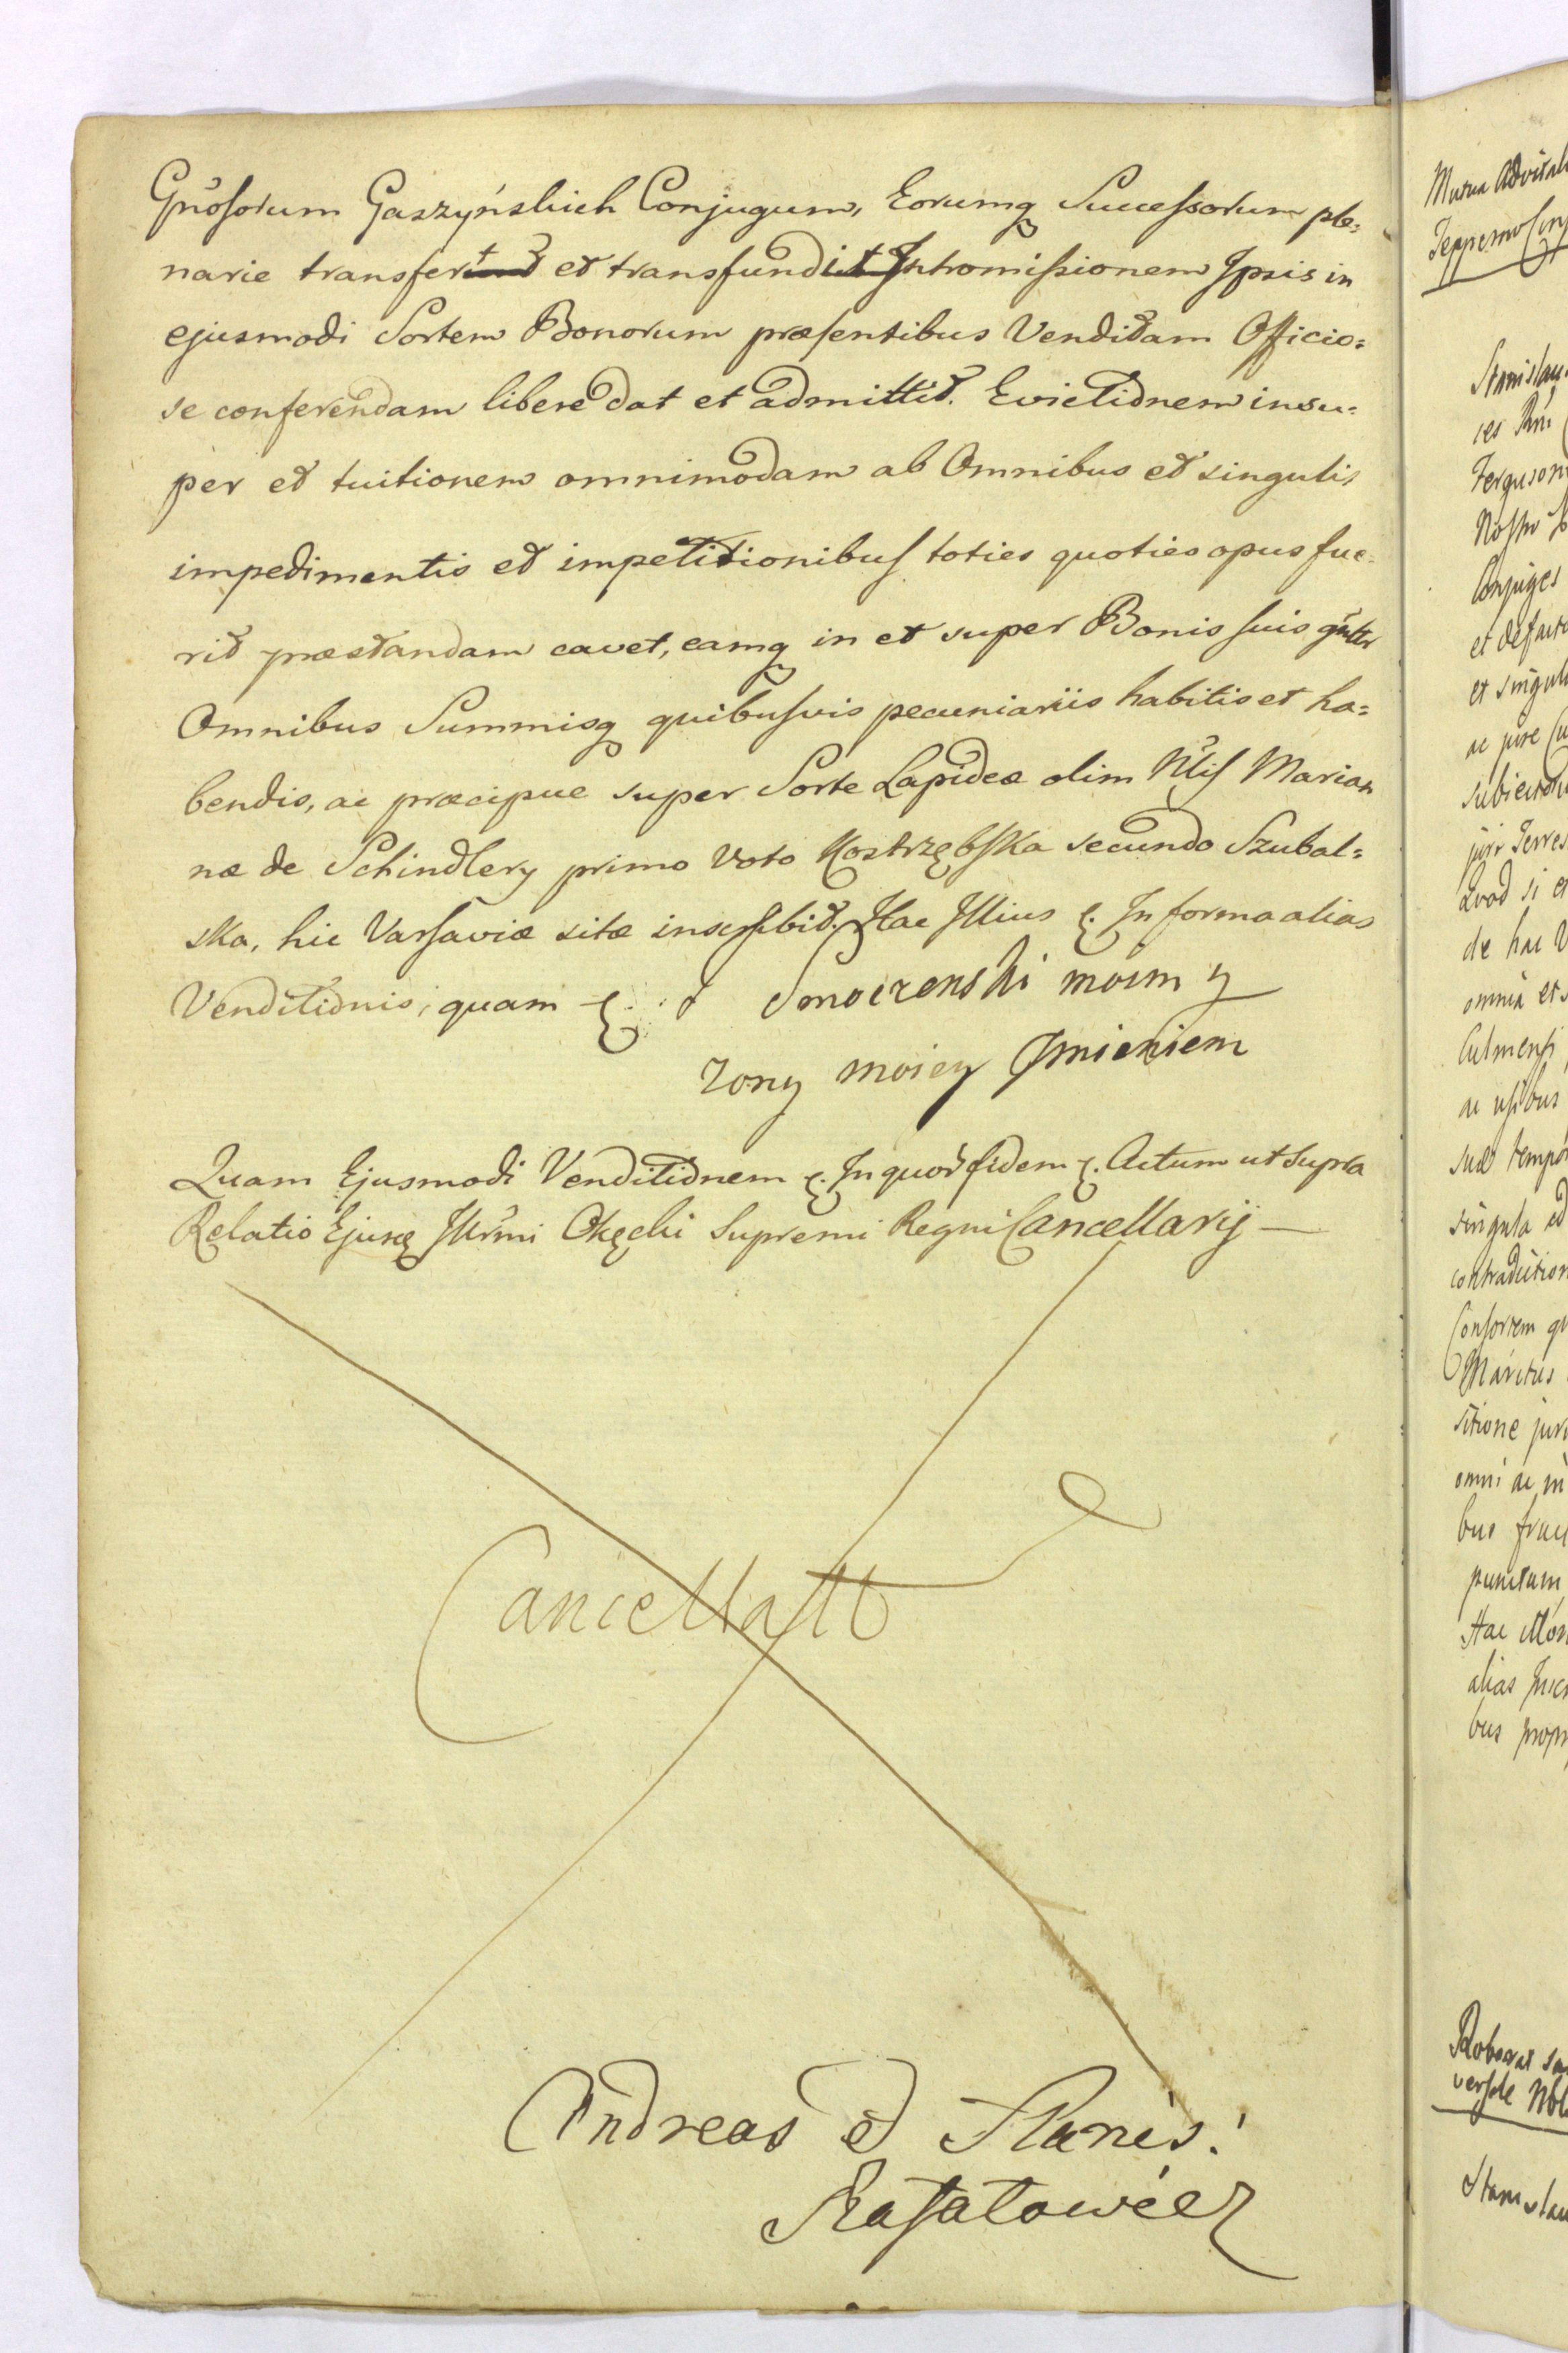 Gnosorum Gaszyńskich Conjugum, Eorumq Successorum ple=
narie transfert et transfundit Intromissionem Ipsis in
ejusmodi Sortem Bonorum præsentibus Venditam Officio=
se conferendam libere dat et admittit. Evictionem insu=
per et tuitionem omnimodam ab Omnibus et singulis
impedimentis et impetitionibus toties quoties opus fue=
rit præstandam cavet, eamq in et super Bonis suis gnlter
Omnibus Summisq quibusvis pecuniariis habitis et ha=
bendis, ac præcipue super Sorte Lapideæ olim Nlis Marian
næ de Schindlery primo Voto Kostrzębska secundo Szubal=
ska, hic Varsaviæ sitæ inscribit. Hac Illius &. In forma alias
Venditionis, quam &.
Smoczenski moim y
zony moiey Jmieniem
Quam Ejusmodi Venditionem &. In quor fidem &. Actum ut Supra
Relatio Ejusq Illrmi Okęcki Supremi Regni Cancellarij —
Cancellatt
Andreas et Stanis:
Mutua Advitali
Stanislaus
ces Rni
Ferguson
Nostr
Conjuges
et defacto
et singul
ac jure
jure Terres
Quod si e
de hac V
omnia et
Culmensi
ac usibus
suæ tempo
singula ed
contradiction
Consortem qu
Maritus
sitione juri
omni ac in
bus fruct
punctum
Hac
alias Inscr
bus propr
Roborat
Stanislau